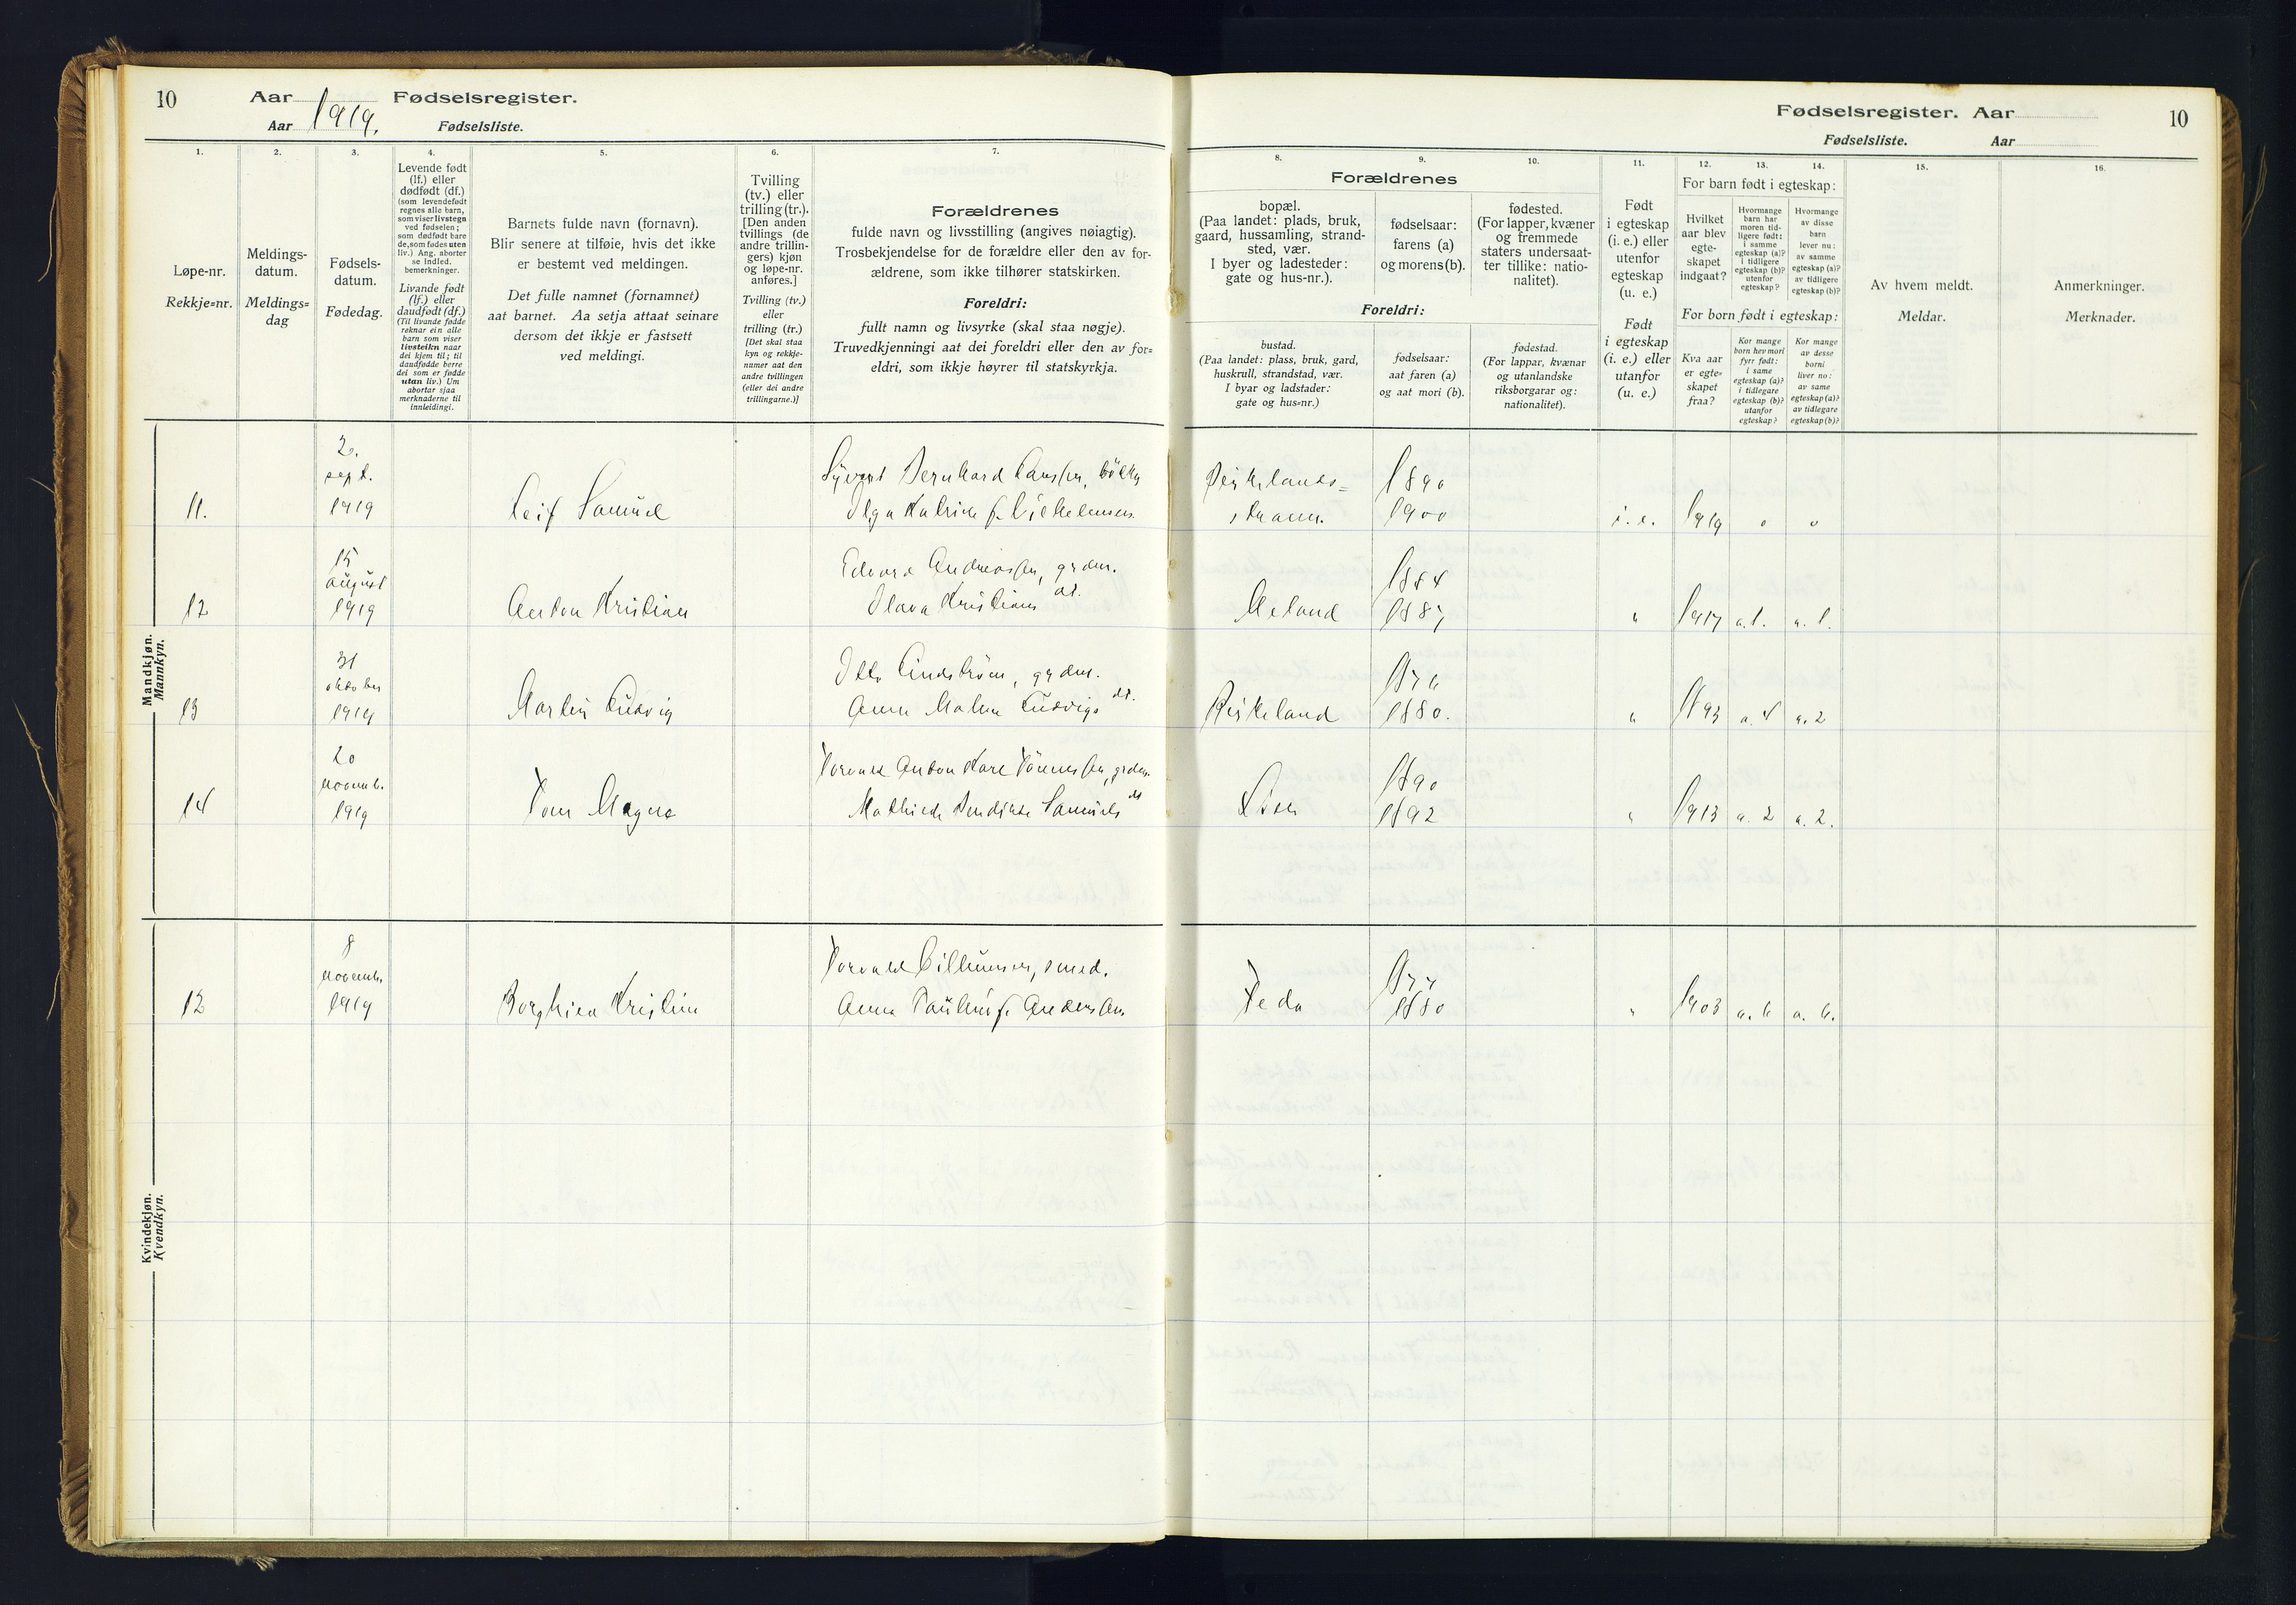 10
Aar 1919. Fødselsregister.
Aar Fødselsliste.
1.
Løpe-nr.
Rekkje=nr.
2.
Meldings-
datum.
Meldings=
dag
3.
Fødsels-
datum.
Fødedag.
4.
Levende født
(lf.) eller
dødfødt (df.)
(som levendefødt
regnes alle barn,
som viser livstegn
ved fødselen;
som dødfødt bare
de, som fødes uten
liv.) Ang. aborter
se indled.
bemerkninger.
Livande født
(lf.) eller
daudfødt (df.)
(Til livande fødde
reknar ein alle
barn som viser
livsteikn naar
dei kjem til; til
daudfødde berre
dei som er fødde
utan liv.) Um
abortar sjaa
merknaderne til
innleidingi.
5.
Barnets fulde navn (fornavn).
Blir senere at tilføie, hvis det ikke
er bestemt ved meldingen.
Det fulle namnet (fornamnet)
aat barnet. Aa setja attaat seinare
dersom det ikkje er fastsett
ved meldingi.
6.
Tvilling
(tv.) eller
trilling (tr.).
[Den anden
tvillings (de
andre trillin-
gers) kjøn
og løpe-nr.
anføres.]
Tvilling (tv.)
eller
trilling (tr.)
[Det skal staa
kyn og rekkje-
numer aat den
andre tvillingen
(eller dei andre
trillingarne.)]
7.
Forældrenes
fulde navn og livsstilling (angives nøiagtig).
Trosbekjendelse for de forældre eller den av for-
ældrene, som ikke tilhører statskirken.
Foreldri:
fullt namn og livsyrke (skal staa nøgje).
Truvedkjenningi aat dei foreldri eller den av for=
eldri, som ikkje høyrer til statskyrkja.
Fødselsregister. Aar 10
Fødselsliste. Aar
8.
9.
10.
Forældrenes
bopæl.
(Paa landet: plads, bruk,
gaard, hussamling, strand-
sted, vær.
I byer og ladesteder:
gate og hus-nr.).
fødselsaar:
farens (a)
og morens (b).
fødested.
(For lapper, kvæner
og fremmede
staters undersaat-
ter tillike: natio-
nalitet).
Foreldri:
bustad.
(Paa landet: plass, bruk, gard,
huskrull, strandstad, vær.
I byar og ladstader:
gate og hus=nr.)
fødselsaar:
aat faren (a)
og aat mori (b).
fødestad.
(For lappar, kvænar
og utanlandske
riksborgarar og:
nationalitet).
11.
Født
i egteskap
(i. e.) eller
utenfor
egteskap
(u. e.)
Født
i egteskap
(i. e.) eller
utanfor
(u. e.)
12.
13.
14.
For barn født i egteskap:
Hvilket
aar blev
egte-
skapet
indgaat?
Hvormange
barn har
moren tid-
ligere født:
i samme
egteskap (a)?
i tidligere
egteskap (b)?
utenfor
egteskap?
Hvormange
av disse
barn
lever nu:
av samme
egteskap (a)?
av tidligere
egteskap (b)?
For born født i egteskap:
Kva aar
er egte-
skapet
fraa?
Kor mange
born hev mori
fyrr født:
i same
egteskap (a)?
i tidlegare
egteskap (b)?
utanfor
egteskap?
Kor mange
av desse
borni
liver no:
av same
egteskap (a)?
av tidlegare
egteskap (b)?
15.
Av hvem meldt.
Meldar.
16.
Anmerkninger.
Merknader.
Mandkjøn.
Mannkyn.
11. 2. sept. 1919 Leif Samuel
Olga f. Vilhelmsen
1890
1900 i. e. 1919 0 0
12 15 august 1919 Anton Kristian
Edvard Andreassen, grdm.
Olava Kristians dt.
Aeland 1884
1887 " 1917 a. 1. a. 1.
13 31 oktober 1919 Martin Ludvig
Otto Lindstrøm, grdm.
Anna Malene Ludvigs dt.
Birkeland 1876
1880. " 1893 a. 4 a. 2
14 20 novemb. 1919 Tom Magne
Torvald Anton Karl Tønnessen, grdm.
Mathilde Bendikte Samuels dt
1890
1892 " 1913 a. 2 a. 2.
Kvindekjøn.
Kvendkyn.
12 8 novemb. 1919 Borghild Kristine
Torvald, smed.
Anna Pauline f. Andersen
Feda 1877
1880 " 1903 a. 6 a. 6.